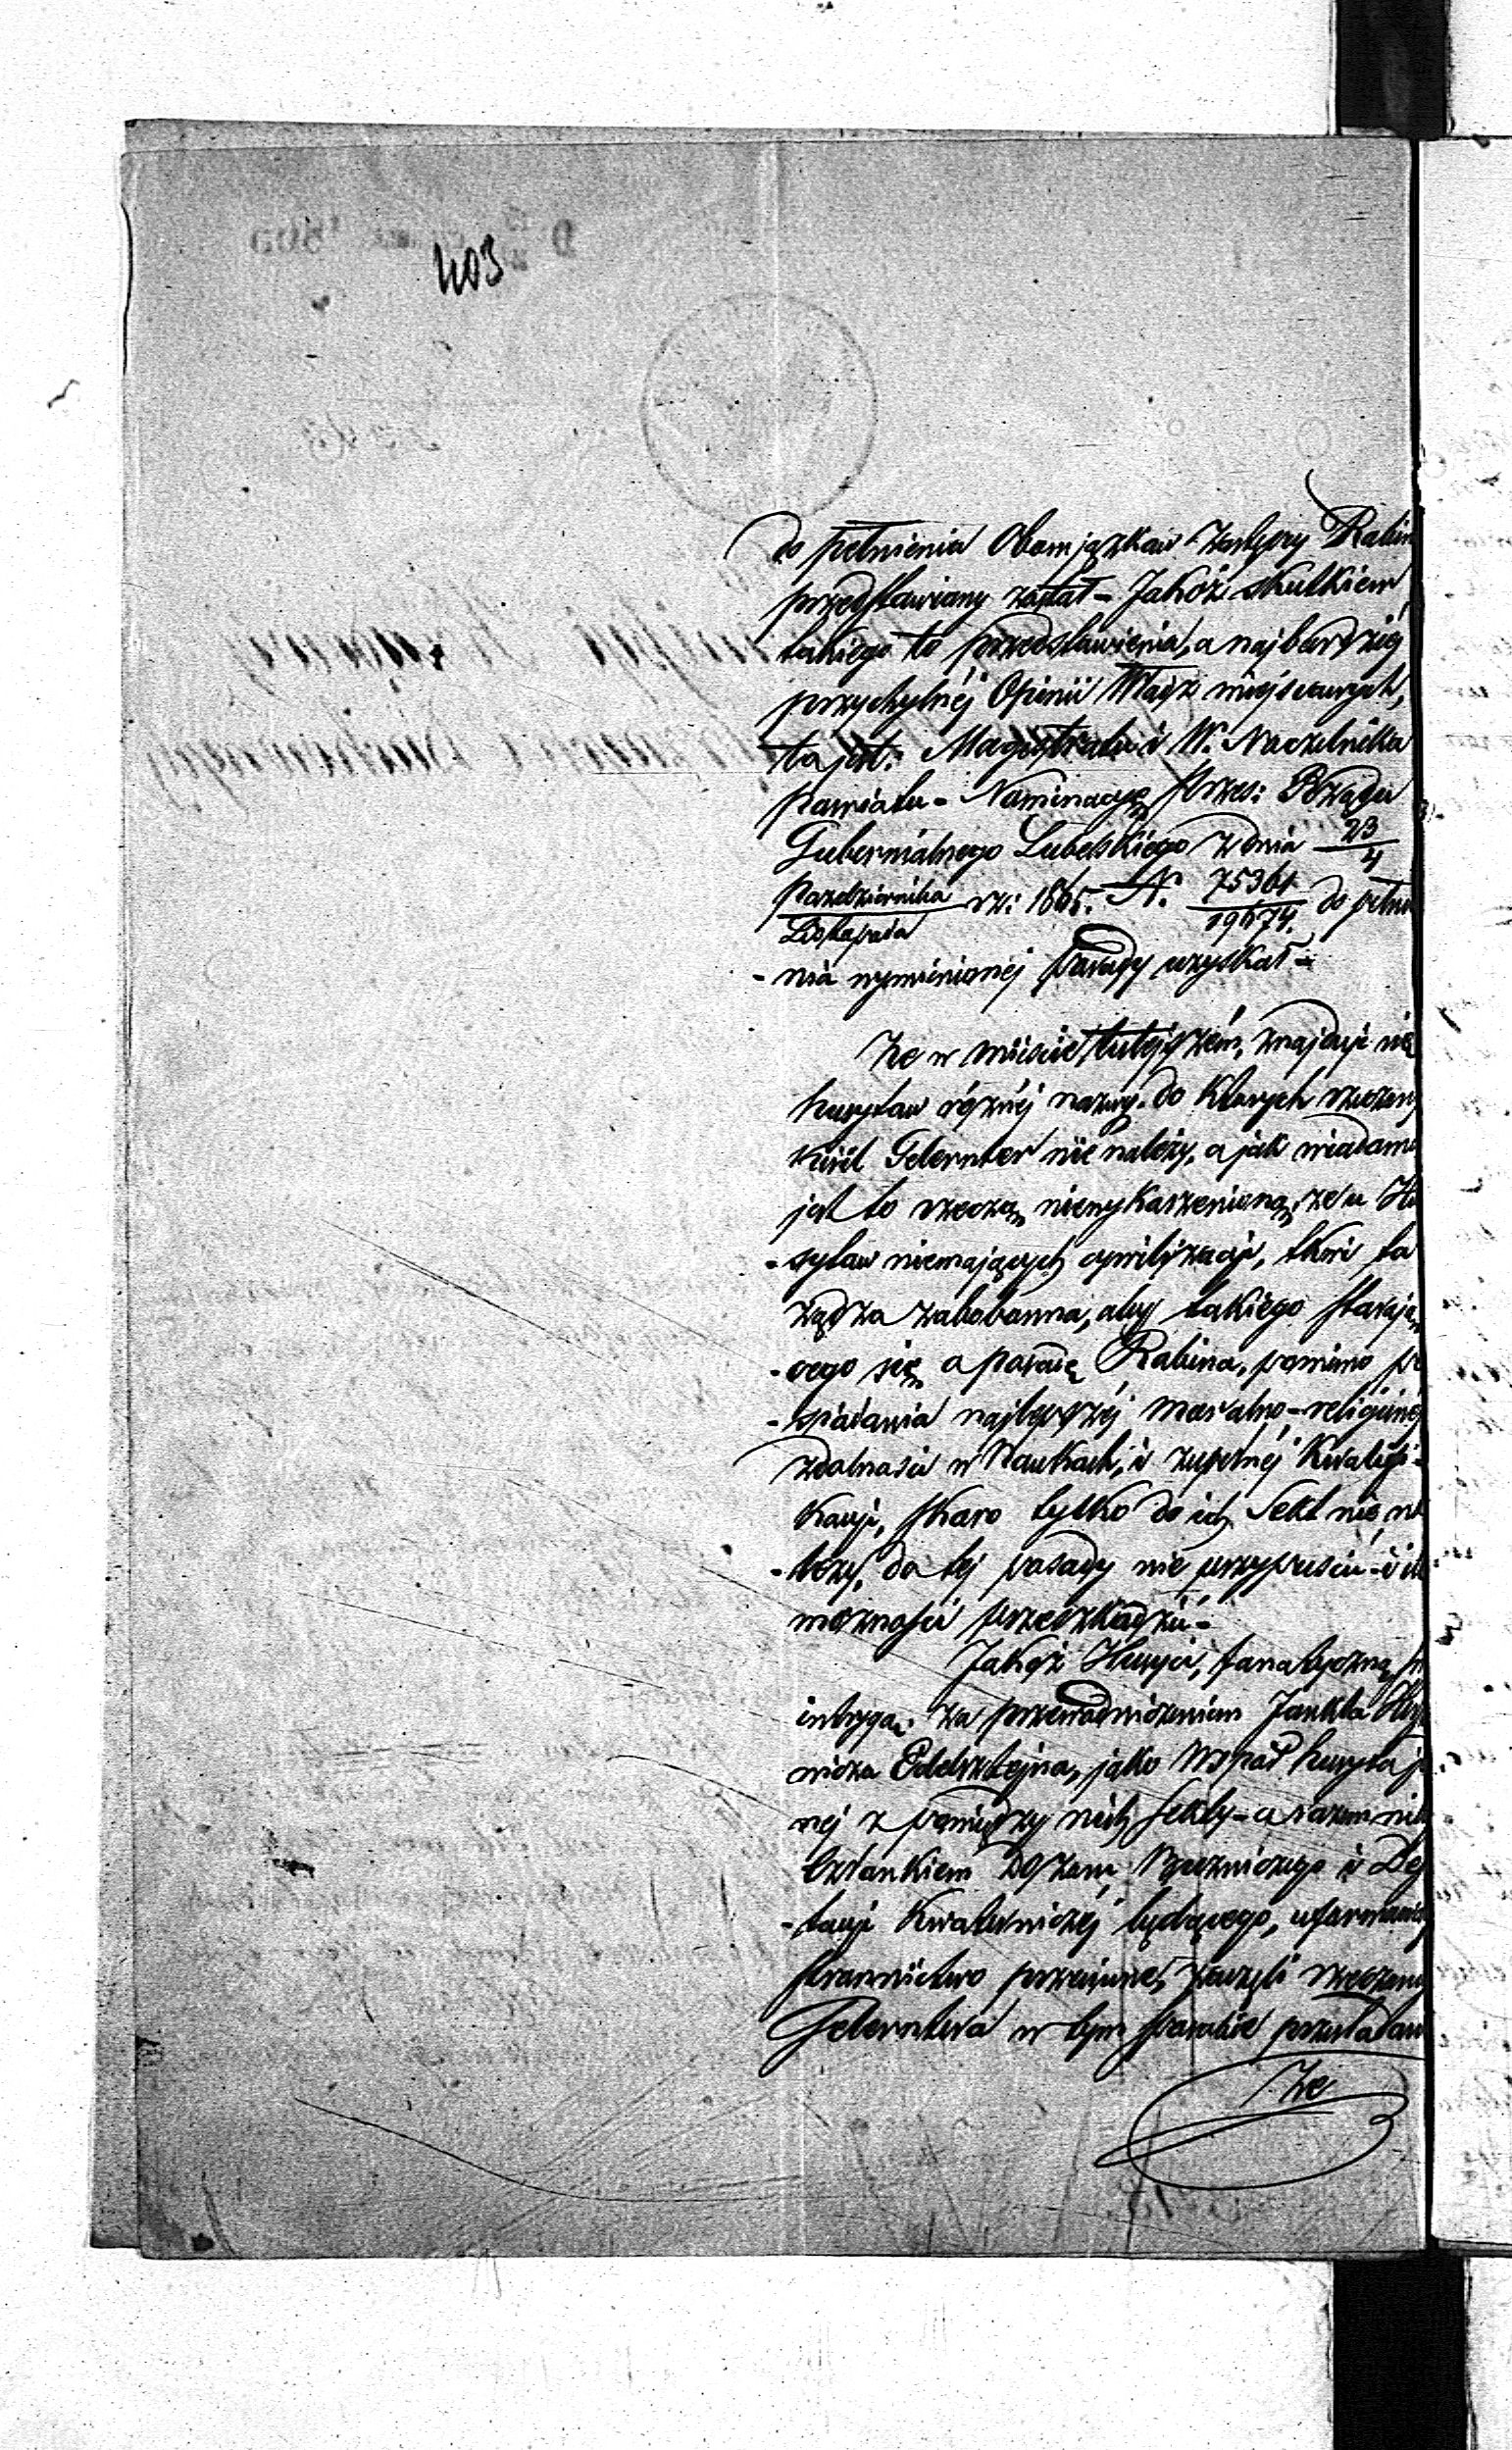 403
do pełnienia Obowiązków Zastępcy Rabin
przedstawiony został - Jakoż skutkiem
takiego to przedstawienia, a najbardziej
przychylnéj Opinii Władz miejscowych,
to jest: Magistratu i W. Naczelnika
Powiatu - Nominacyę przez: Rządu
Gubernialnego Lubelskiego z dnia 23/4
Października/Listopada rz: 1865. N. 75361/19674. do pełnie
- nia wymienionéj Posady uzyskał -
Że w mieście tutejszém, znajduje się
husytów różnéj nazwy, do których rzeczony
Gelernter nie należy, a jak wiadomo
jest to rzeczą niewykorzenioną, że u Hu
- sytów niemających cywilizacyi, tkwi ta
żądza zabobonna, aby takiego starają
- cego się o posadę Rabina, pomimo po
- siadania najlepszéj moralno-religijnéj
zdolności w Naukach, i zupełnéj Kwalifi-
kacyi, skoro tylko do ich Sekt nie na
- leży, do tej posady nie przypuścić - i ile
możności przeszkadzić -
Jakoż Husyci, fanatyczną
intrygą, za przewodniczeniem Jankla
wicza Edelsztejna, jako husyta je
nej z pomiędzy nich Sekty - a razem
Członkiem Dozoru Bożniczego i Depu
- tacyi Kwaterniczéj będącego, uformowa
stronnictwo przeciwne, zaczęli rzeczonego
Gelerntera w tym sposobie prześladow
Że